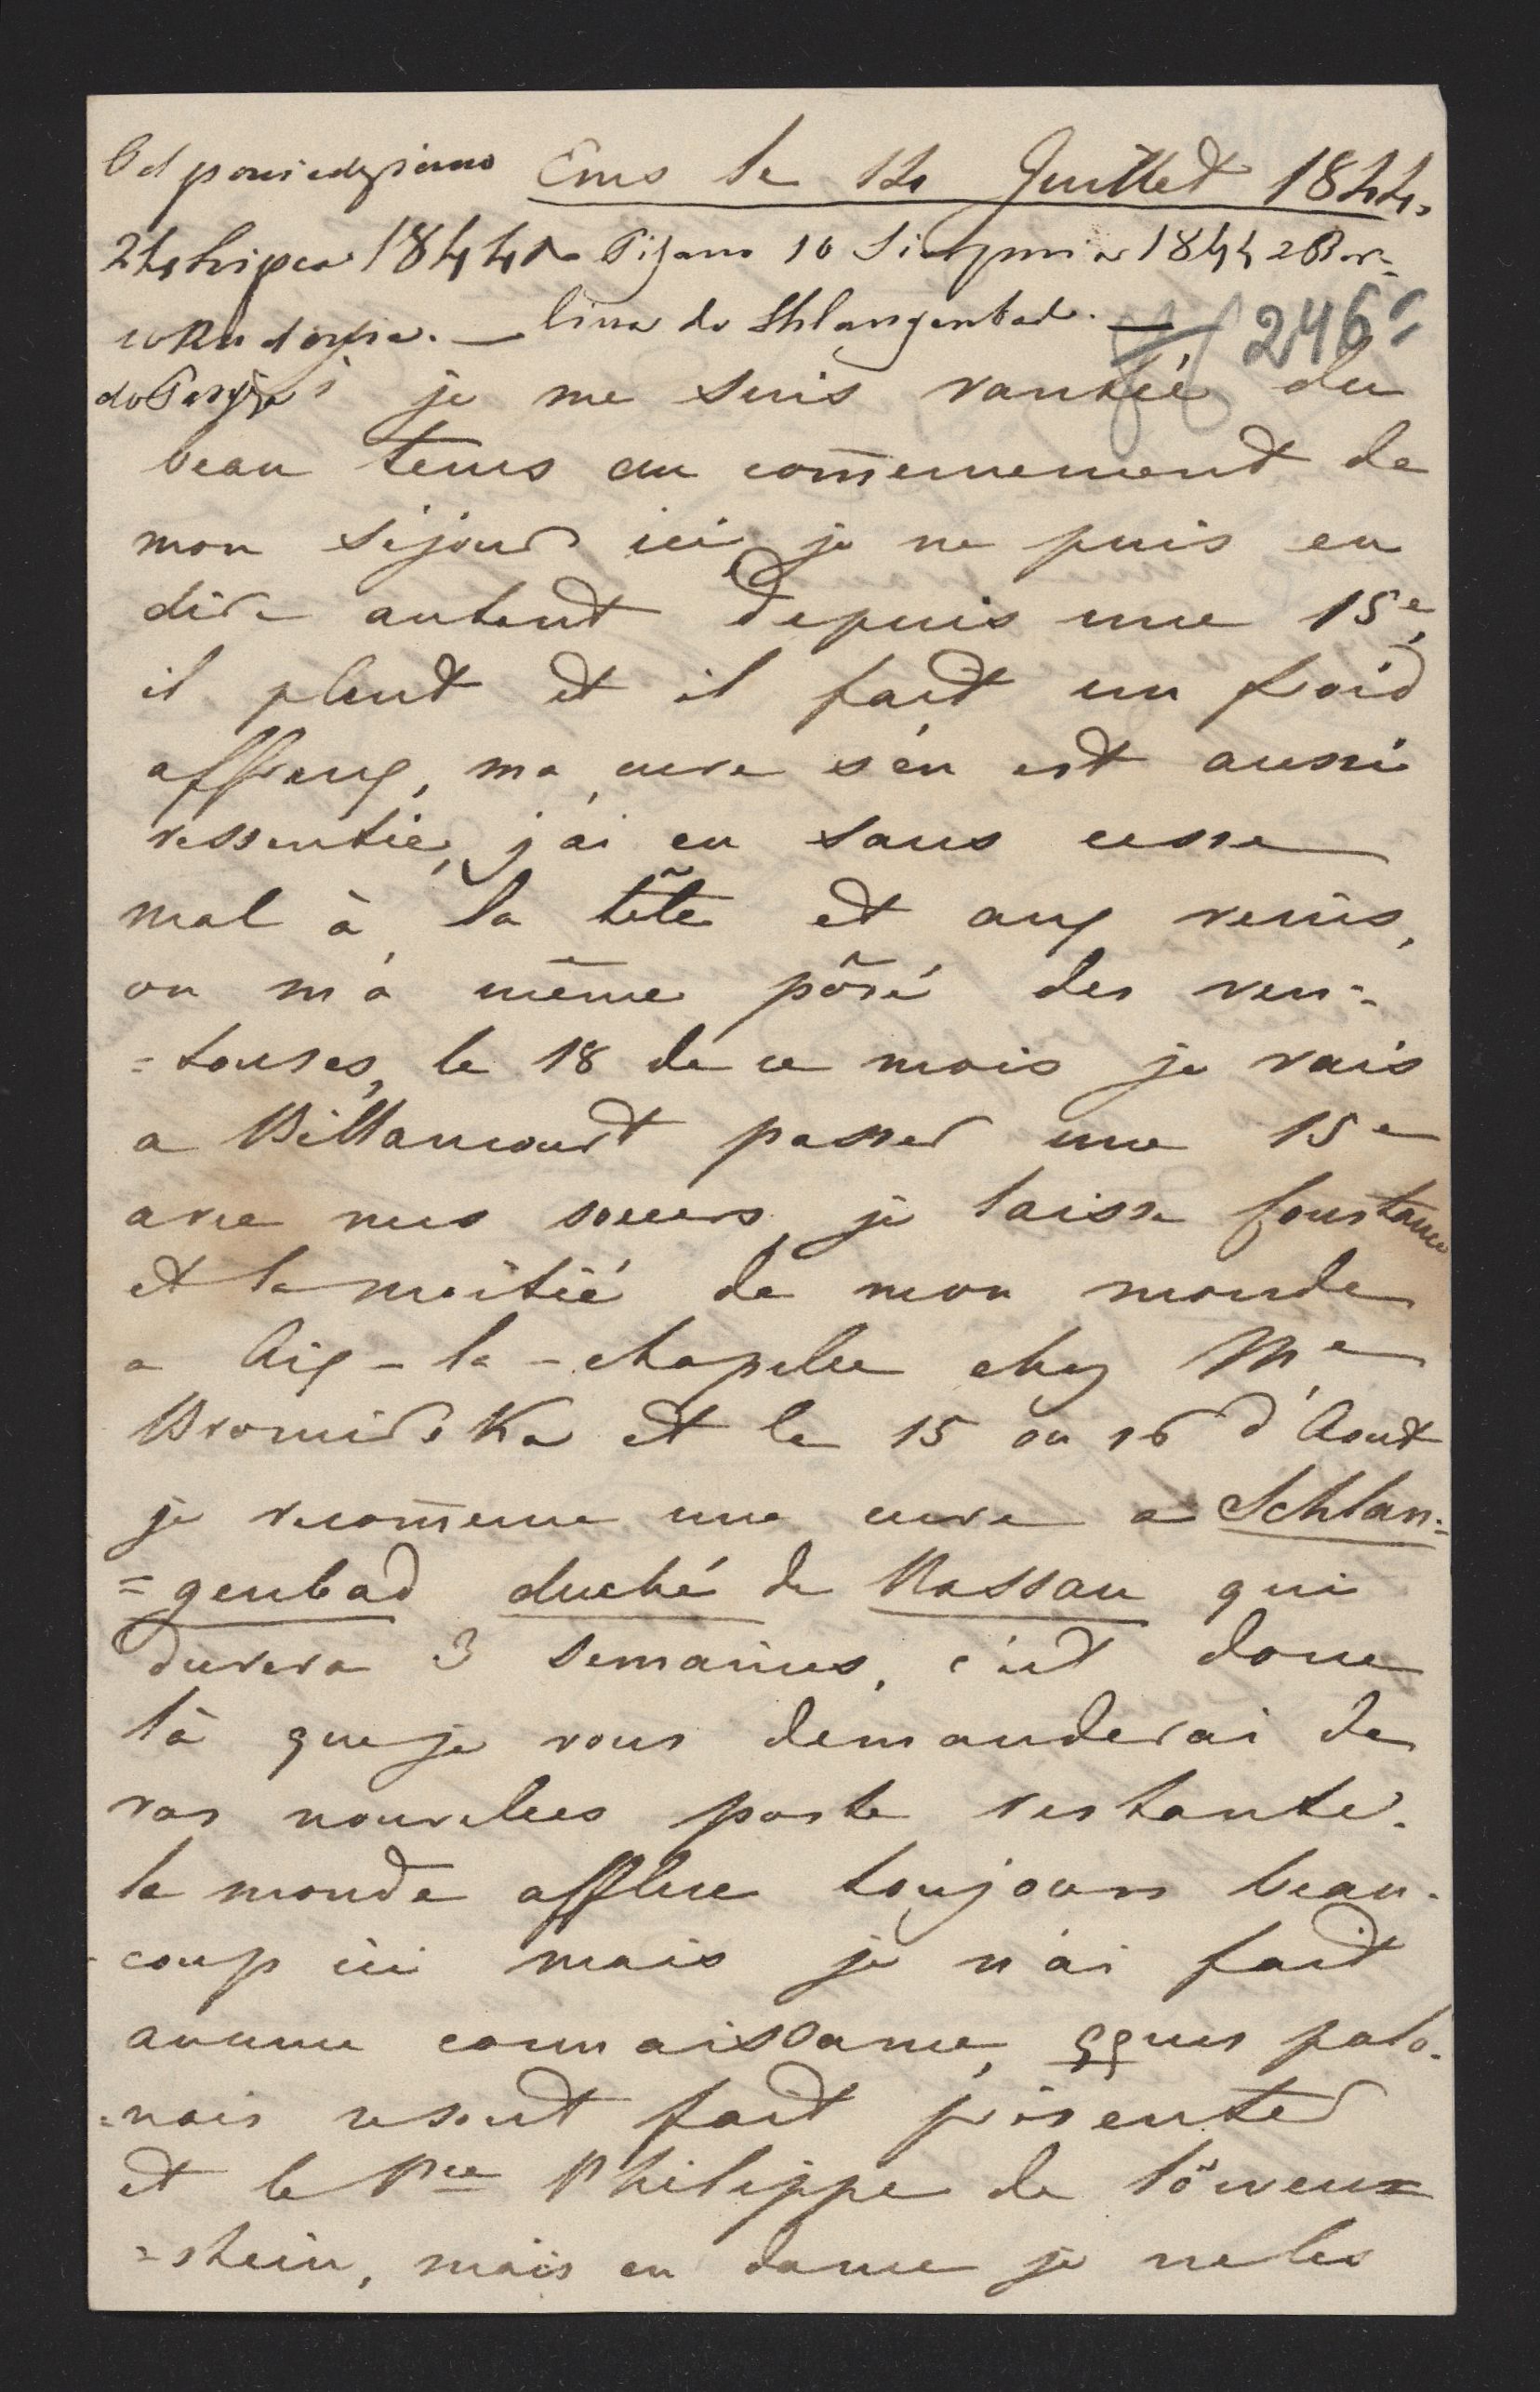 Odpowiedziano Ems le 12 Juillet 1844.
24 Lipca 1844 Pisano 10 Sierpnia 1844 z Ber=
w Rudorfie. — lina do Shlangenbad. —
246
do Paryża je me suis vantée du
beau tems au com̄encement de
mon séjour ici, je ne puis en
dire autant depuis une 15e,
il pleut et il fait un froid
affreux, ma cure s'en est aussi
ressentie, j'ai eu sans cesse
mal à la tête et aux reins,
on m'a même pôsé des ven=
=touses, le 18 de ce mois je vais
a Billancourt passer une 15e
avec mes soeurs, je laisse Constance
et la moitié de mon monde
a Aix-la-chapelle chez Me
Bronirska et le 15 ou 16 d'Aout
je recom̄ence une cure a Schlan=
=genbad duché de Nassau qui
durera 3 semaines, c'est donc
là que je vous demanderai de
vos nouvelles poste restante.
le monde afflue toujours beau-
-coup ici mais je n'ai fait
aucune connaissance, qques polo-
=nais se sont fait présenter
et le Pce Philippe de Löwen=
=stein, mais en dame je ne les